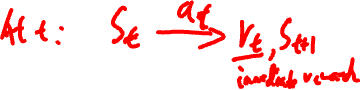 At t: St at→ rt, St+1
immediate reward